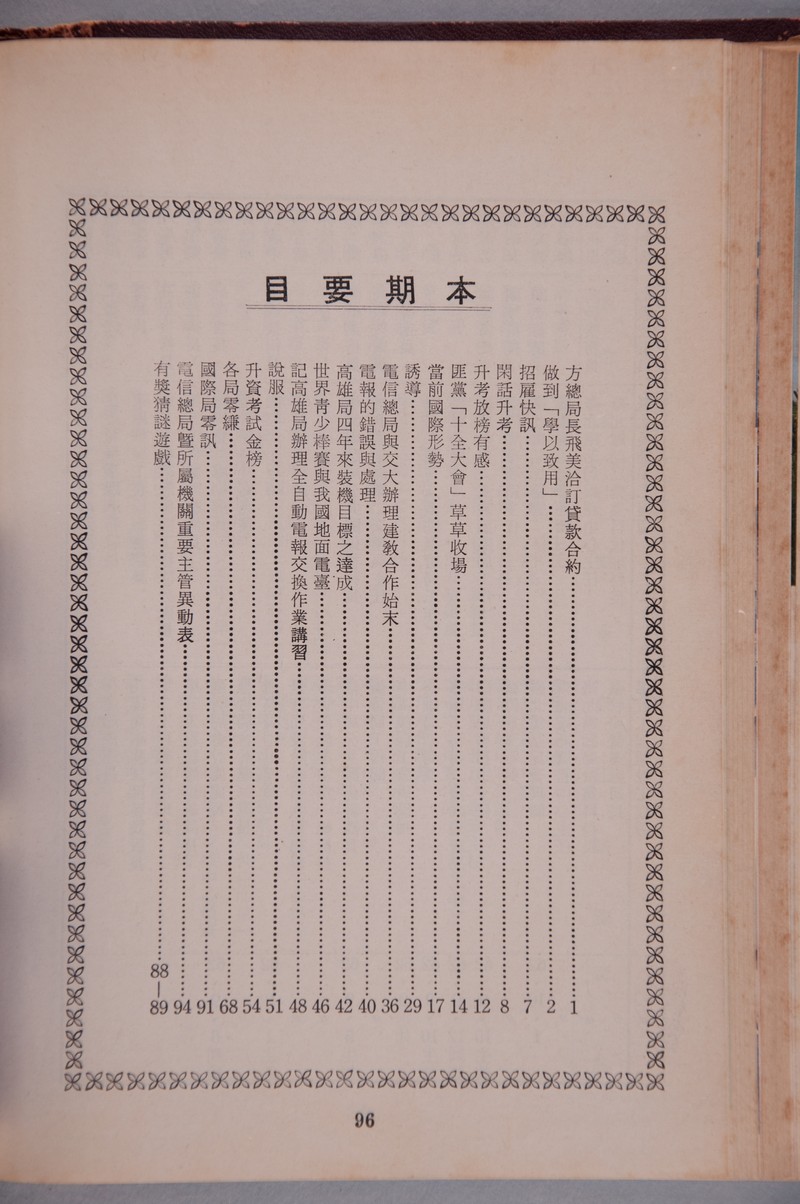 本期要目
方總局長飛美洽訂貸款合約……1
做到「學以致用」……2
招雇快訊……7
閑話升考……8
升考放榜有感……12
匪黨「十全大會」草草收場……14
當前國際形勢……17
誘導……29
電信總局與交大辦理建教合作始末……36
電報的錯誤與處理……40
高雄局四年來裝機目標之達成……42
世界青少棒賽與我國地面電臺……46
記高雄局辦理全自動電報交換作業講習……48
說服……51
升資考試金榜……54
各局零縑……68
國際局零訊……91
電信總局暨所屬機關重要主管異動表……94
有獎猜謎遊戲……88—89
96